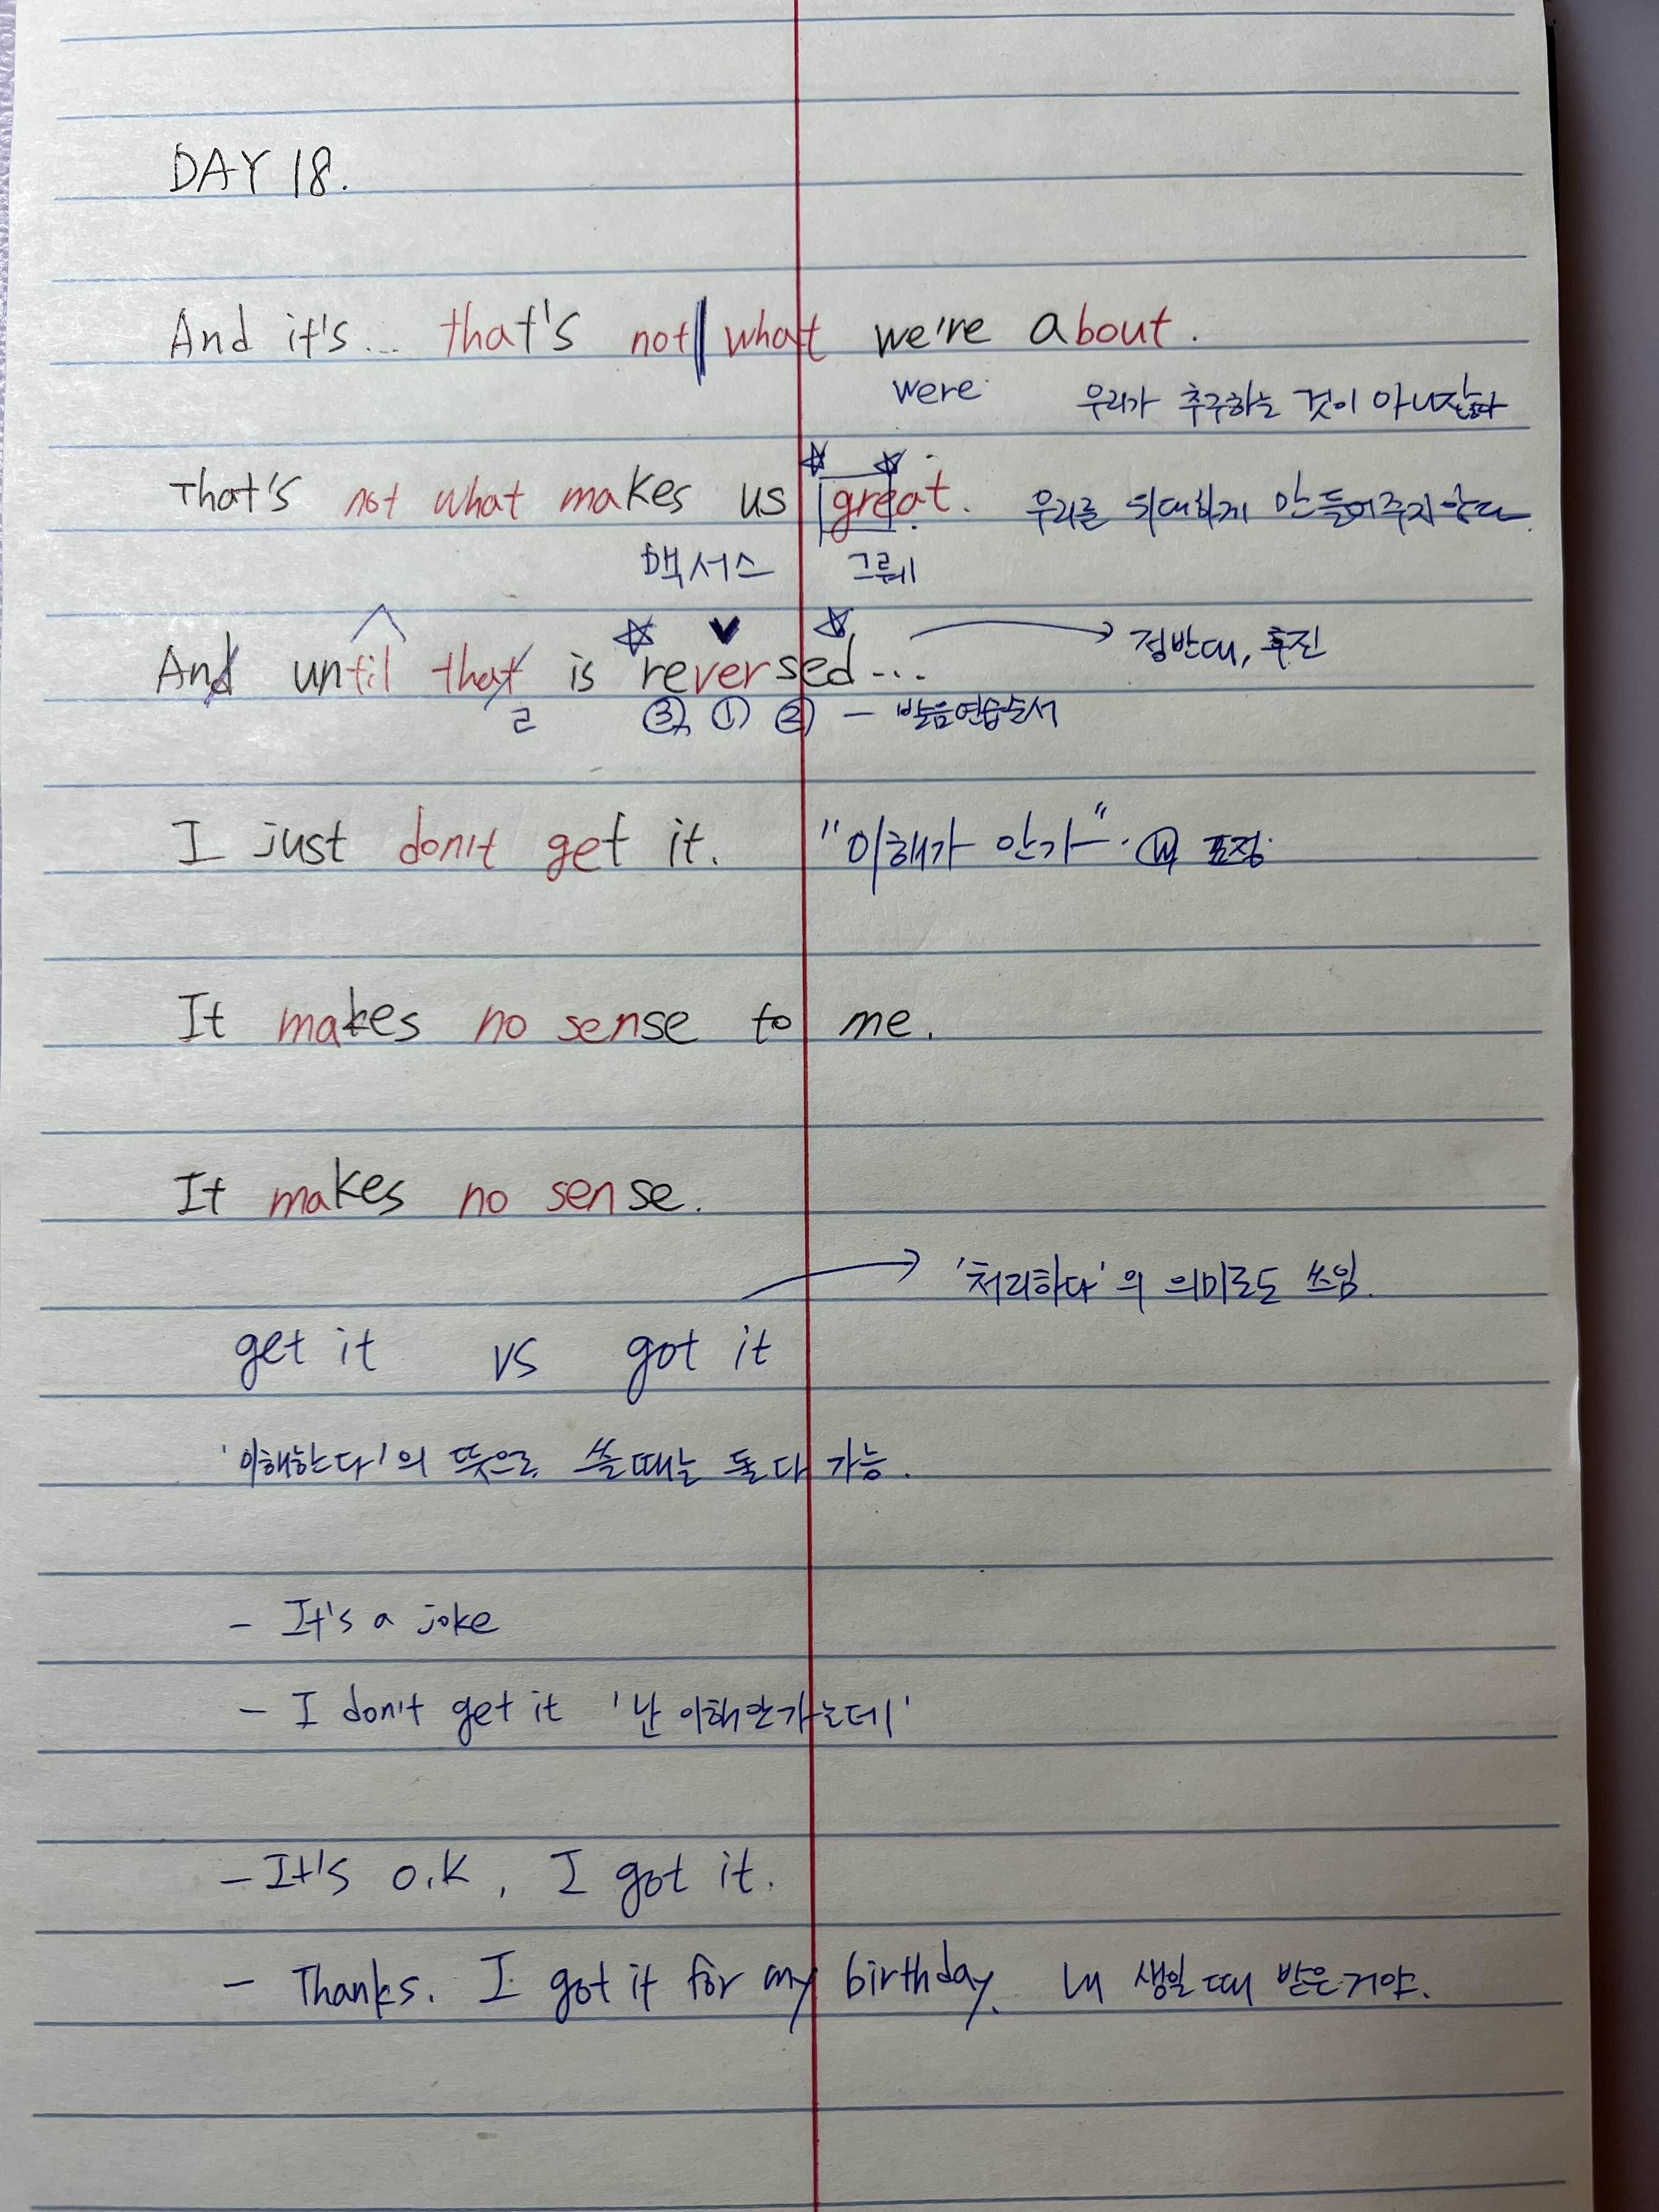 DAY 18.
And it's... that's not what we're about.
were 우리가 추구하는 것이 아니잖다
That's not what makes us great. 우리를 위대하게 만들어주지 않다
맥서스 그뤠
And until that is reversed... 정반대, 후진
ㄹ ③ ① ② - 발음연습순서
I just don't get it. "이해가 안가". 표정.
It makes no sense to me.
It makes no sense.
'처리하다'의 의미로도 쓰임.
get it vs got it
'이해한다'의 뜻으로 쓸때는 둘다 가능.
- It's a joke
- I don't get it '난 이해안가는데'
- It's o.k, I got it.
- Thanks. I got it for my birthday. 내 생일 때 받은거야.